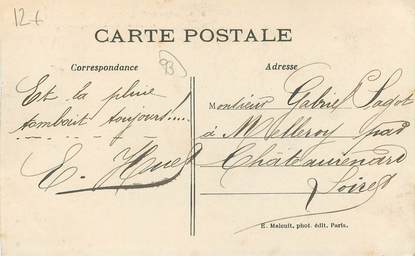 12-6
CARTE POSTALE
93
Correspondance
Adresse
Et la pluie
tombait toujours!...
E. Huet
Monsieur Gabriel Sagot
à Melleroy par
Châteaurenard
Loiret
E. Malcuit, phot. édit. Paris.